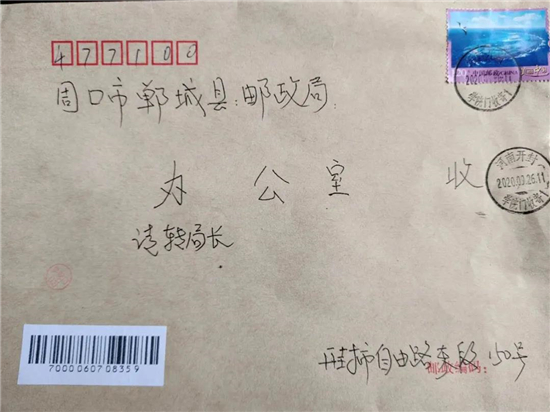 477100
周口市郸城县邮政局
办公室 收
请转局长
河南开封
2020.03.26.11
7000060708359
开封市自由路东段150号
邮政编码: